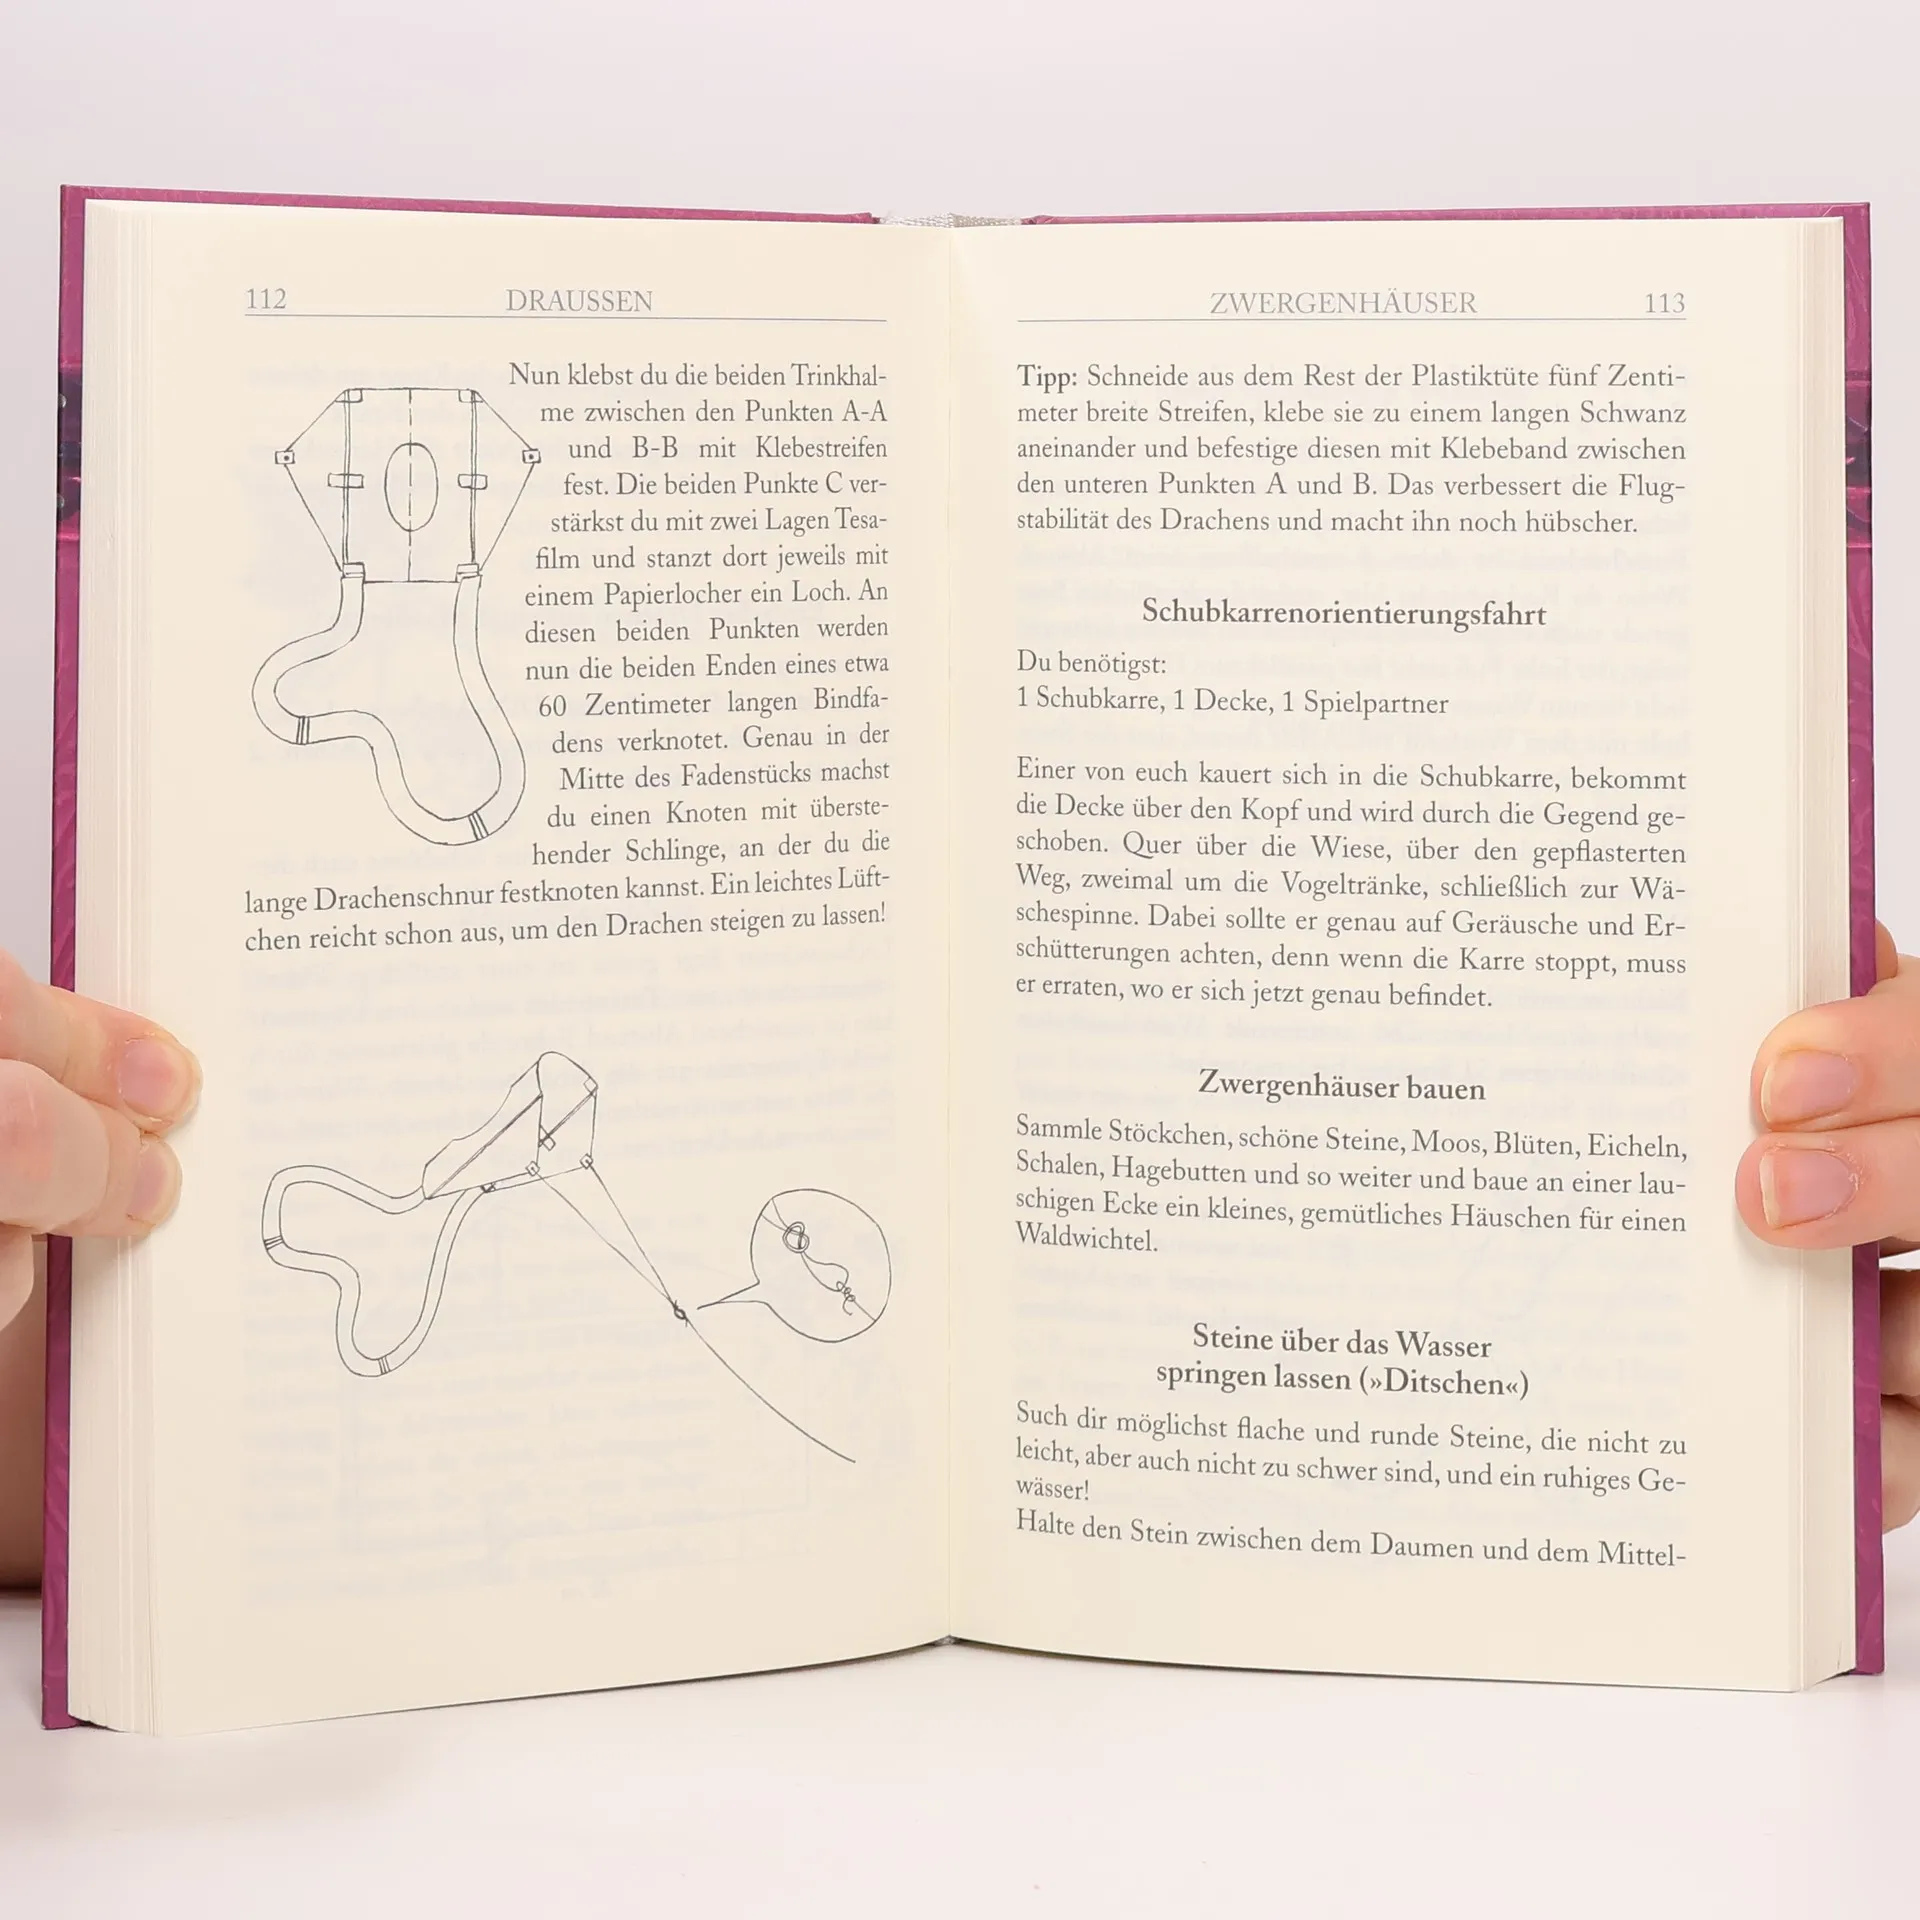 112
DRAUSSEN
Nun klebst du die beiden Trinkhal-
me zwischen den Punkten A-A
und B-B mit Klebestreifen
fest. Die beiden Punkte C ver-
stärkst du mit zwei Lagen Tesa-
film und stanzt dort jeweils mit
einem Papierlocher ein Loch. An
diesen beiden Punkten werden
nun die beiden Enden eines etwa
60 Zentimeter langen Bindfa-
dens verknotet. Genau in der
Mitte des Fadenstücks machst
du einen Knoten mit überste-
hender Schlinge, an der du die
lange Drachenschnur festknoten kannst. Ein leichtes Lüft-
chen reicht schon aus, um den Drachen steigen zu lassen!
ZWERGENHÄUSER
113
Tipp: Schneide aus dem Rest der Plastiktüte fünf Zenti-
meter breite Streifen, klebe sie zu einem langen Schwanz
aneinander und befestige diesen mit Klebeband zwischen
den unteren Punkten A und B. Das verbessert die Flug-
stabilität des Drachens und macht ihn noch hübscher.
Schubkarrenorientierungsfahrt
Du benötigst:
1 Schubkarre, 1 Decke, 1 Spielpartner
Einer von euch kauert sich in die Schubkarre, bekommt
die Decke über den Kopf und wird durch die Gegend ge-
schoben. Quer über die Wiese, über den gepflasterten
Weg, zweimal um die Vogeltränke, schließlich zur Wä-
schespinne. Dabei sollte er genau auf Geräusche und Er-
schütterungen achten, denn wenn die Karre stoppt, muss
er erraten, wo er sich jetzt genau befindet.
Zwergenhäuser bauen
Sammle Stöckchen, schöne Steine, Moos, Blüten, Eicheln,
Schalen, Hagebutten und so weiter und baue an einer lau-
schigen Ecke ein kleines, gemütliches Häuschen für einen
Waldwichtel.
Steine über das Wasser
springen lassen (»Ditschen«)
Such dir möglichst flache und runde Steine, die nicht zu
leicht, aber auch nicht zu schwer sind, und ein ruhiges Ge-
wässer!
Halte den Stein zwischen dem Daumen und dem Mittel-